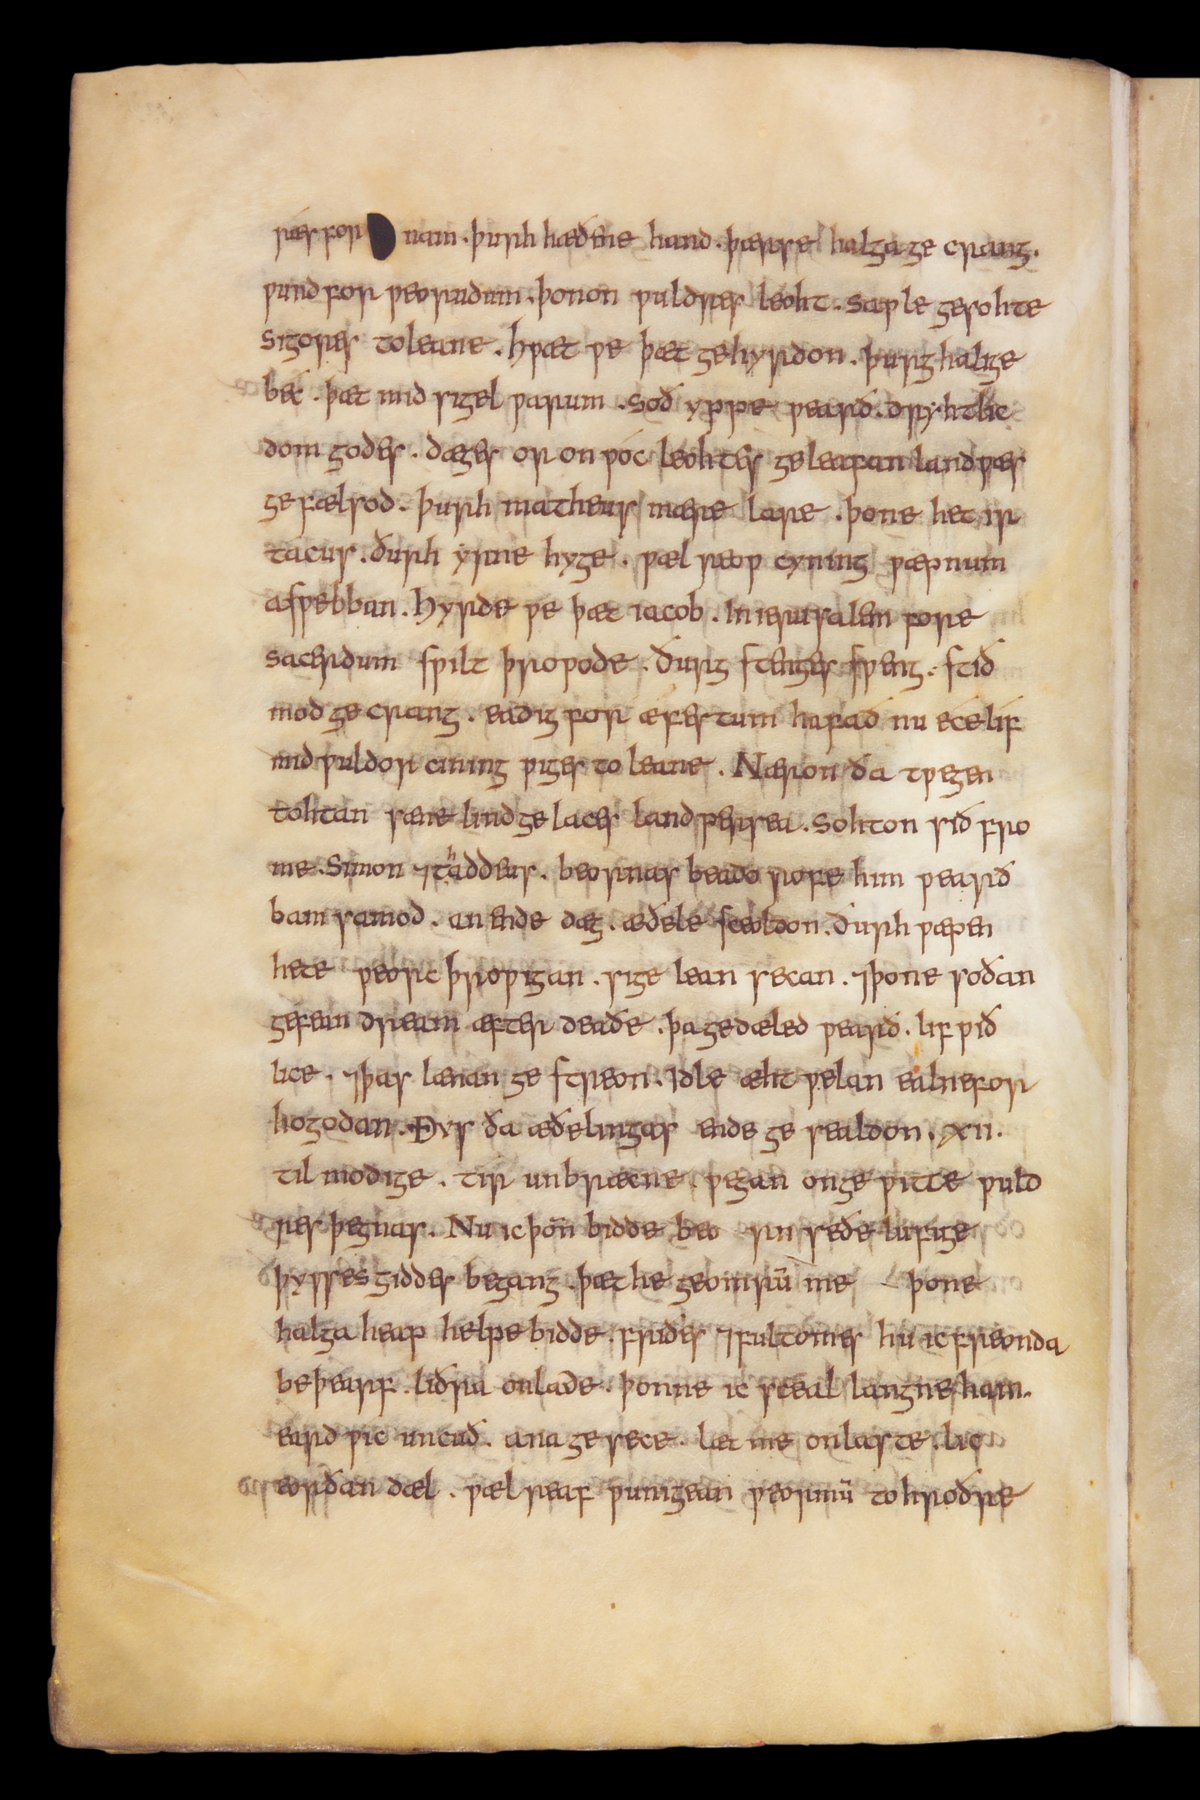 ræs for nam . þurh hæðene hand . þær se halga ge crang .
ƿund for ƿeorudum . þonon ƿuldres leoht . saƿle gesohte
sigores to leane . Hƿæt ƿe þæt gehyrdon . þurg halige
bec . þæt mid sigelƿarum . soð yppe ƿearð . dryhtlic
dom godes . dæges or onƿoc leohtes geleafan land ƿæs
gefælsod . þurh matheus mære lare . þone het ir
tacus . ðurh yrne hyge . ƿælreoƿ cyning ƿæpnum
asƿebban . Hyrde ƿe þæt iacob . In ierusalem fore
sacerdum sƿilt þroƿode . ðurg stenges sƿeng . stið
mod ge crang . eadig for æfestum hafað nu ece lif
mid ƿuldor cining ƿiges to leane . Næron ða tƿegen
tohtan sæne lind ge laces land ƿersea . sohton sið fro
me . Simon ⁊ thaddeus . beornas beado rofe him ƿearð
bam samod . an ende dæg . æðele sceoldon . ðurh ƿæpen
hete ƿeorc þroƿigan . sige lean secan . ⁊ þone soðan
gefean dream æfter deaðe . þa gedæled ƿearð . lif ƿið
lice . ⁊ þas lænan ge streon . Idle æht ƿelan ealne for
hogodan . Ðys ða æðelingas ende ge sealdon . XII .
til modige . tir unbræcne . ƿegan on geƿitte ƿuld
res þegnas . Nu ic þoñ bidde beo rn se ðe lufige
þysses giddes begang . þæt he geomrū me þone
halga heap helpe bidde . friðes ⁊ fultomes hu ic freonda
beþearf . liðra on lade . þonne ic sceal langne ham .
eard ƿic uncuð . ana gesece . læt me on laste . lic
eorðan dæl . ƿælreaf ƿunigean ƿeormū to hroðre